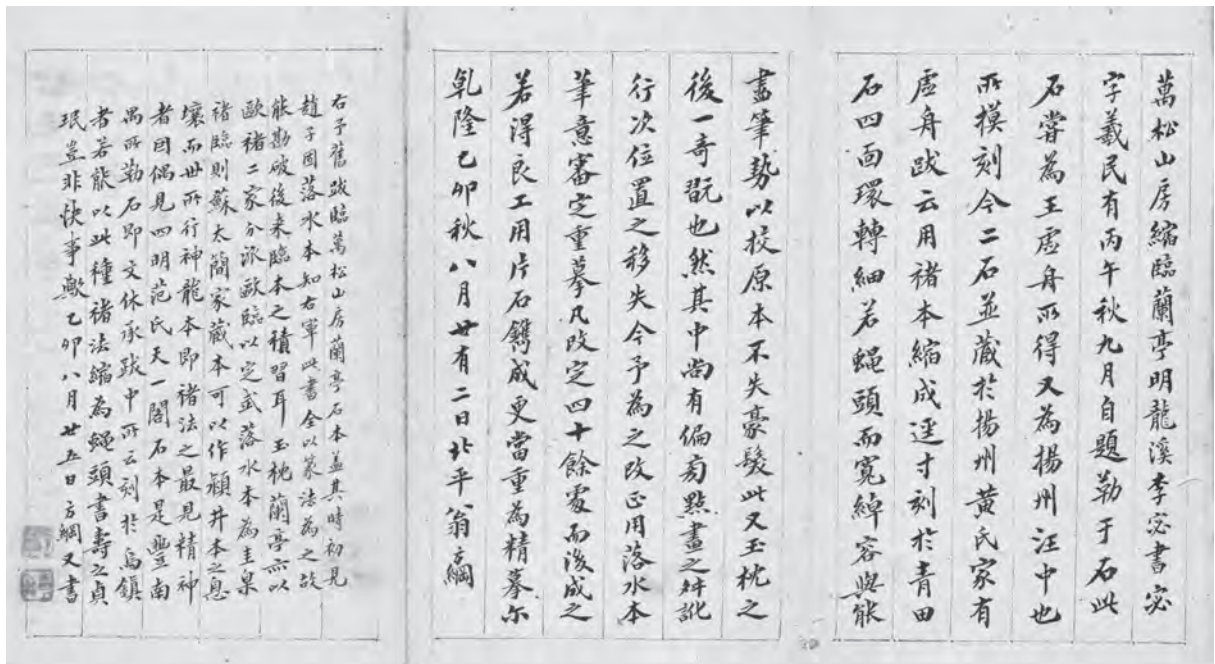 萬松山房縮臨蘭亭明龍溪李宓書宓
字羲民有丙午秋九月自題勒于石此
石嘗為王虛舟所得又為楊州汪中也
所模刻今二石並蔵於揚州黄氏家有
虛舟跋云用褚本縮成逕寸刻於青田
石四面環轉細若蝇頭而寛綽容與能
畫筆勢以挍原本不失豪髮此又玉枕之
後一奇翫也然其中尚有偏旁點畫之舛訛
行次位置之移失今予為之改正用落水本
筆意審定重摹凡改定四十餘處而後成之
若得良工用片石鐫成更當重為精摹尔
乹隆乙卯秋八月廿有二日北平翁方綱
右予舊跋臨萬松山房蘭亭石本盖其時初見
趙子固落水本知右軍此書全以篆法為之故
能勘破後来臨本之積習耳玉枕蘭亭亦以
歐褚二家分派歐臨以定武落水本為圭臬
褚臨則蘇太簡家蔵本可以作潁井本之息
壤而世所行神龍本即褚法之最見精神
者因偶見四明范氏天一閣石本是豐南
禺所勒石即文休承跋中所云刻於烏鎮
者若能以此種褚法縮為蝇頭書壽之貞
珉豈非快事歟乙卯八月廿五日方綱又書